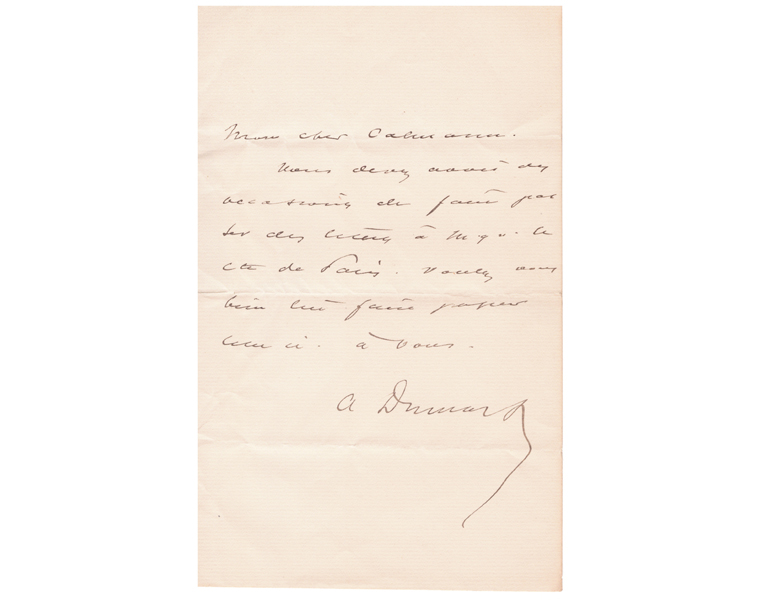 Mon cher Calmann.
Vous devez avoir des
occasions de faire pas
ser des lettres à Mgr le
cte de Paris. Voulez vous
bien lui faire passer
celle ci. à vous.
A Dumas f